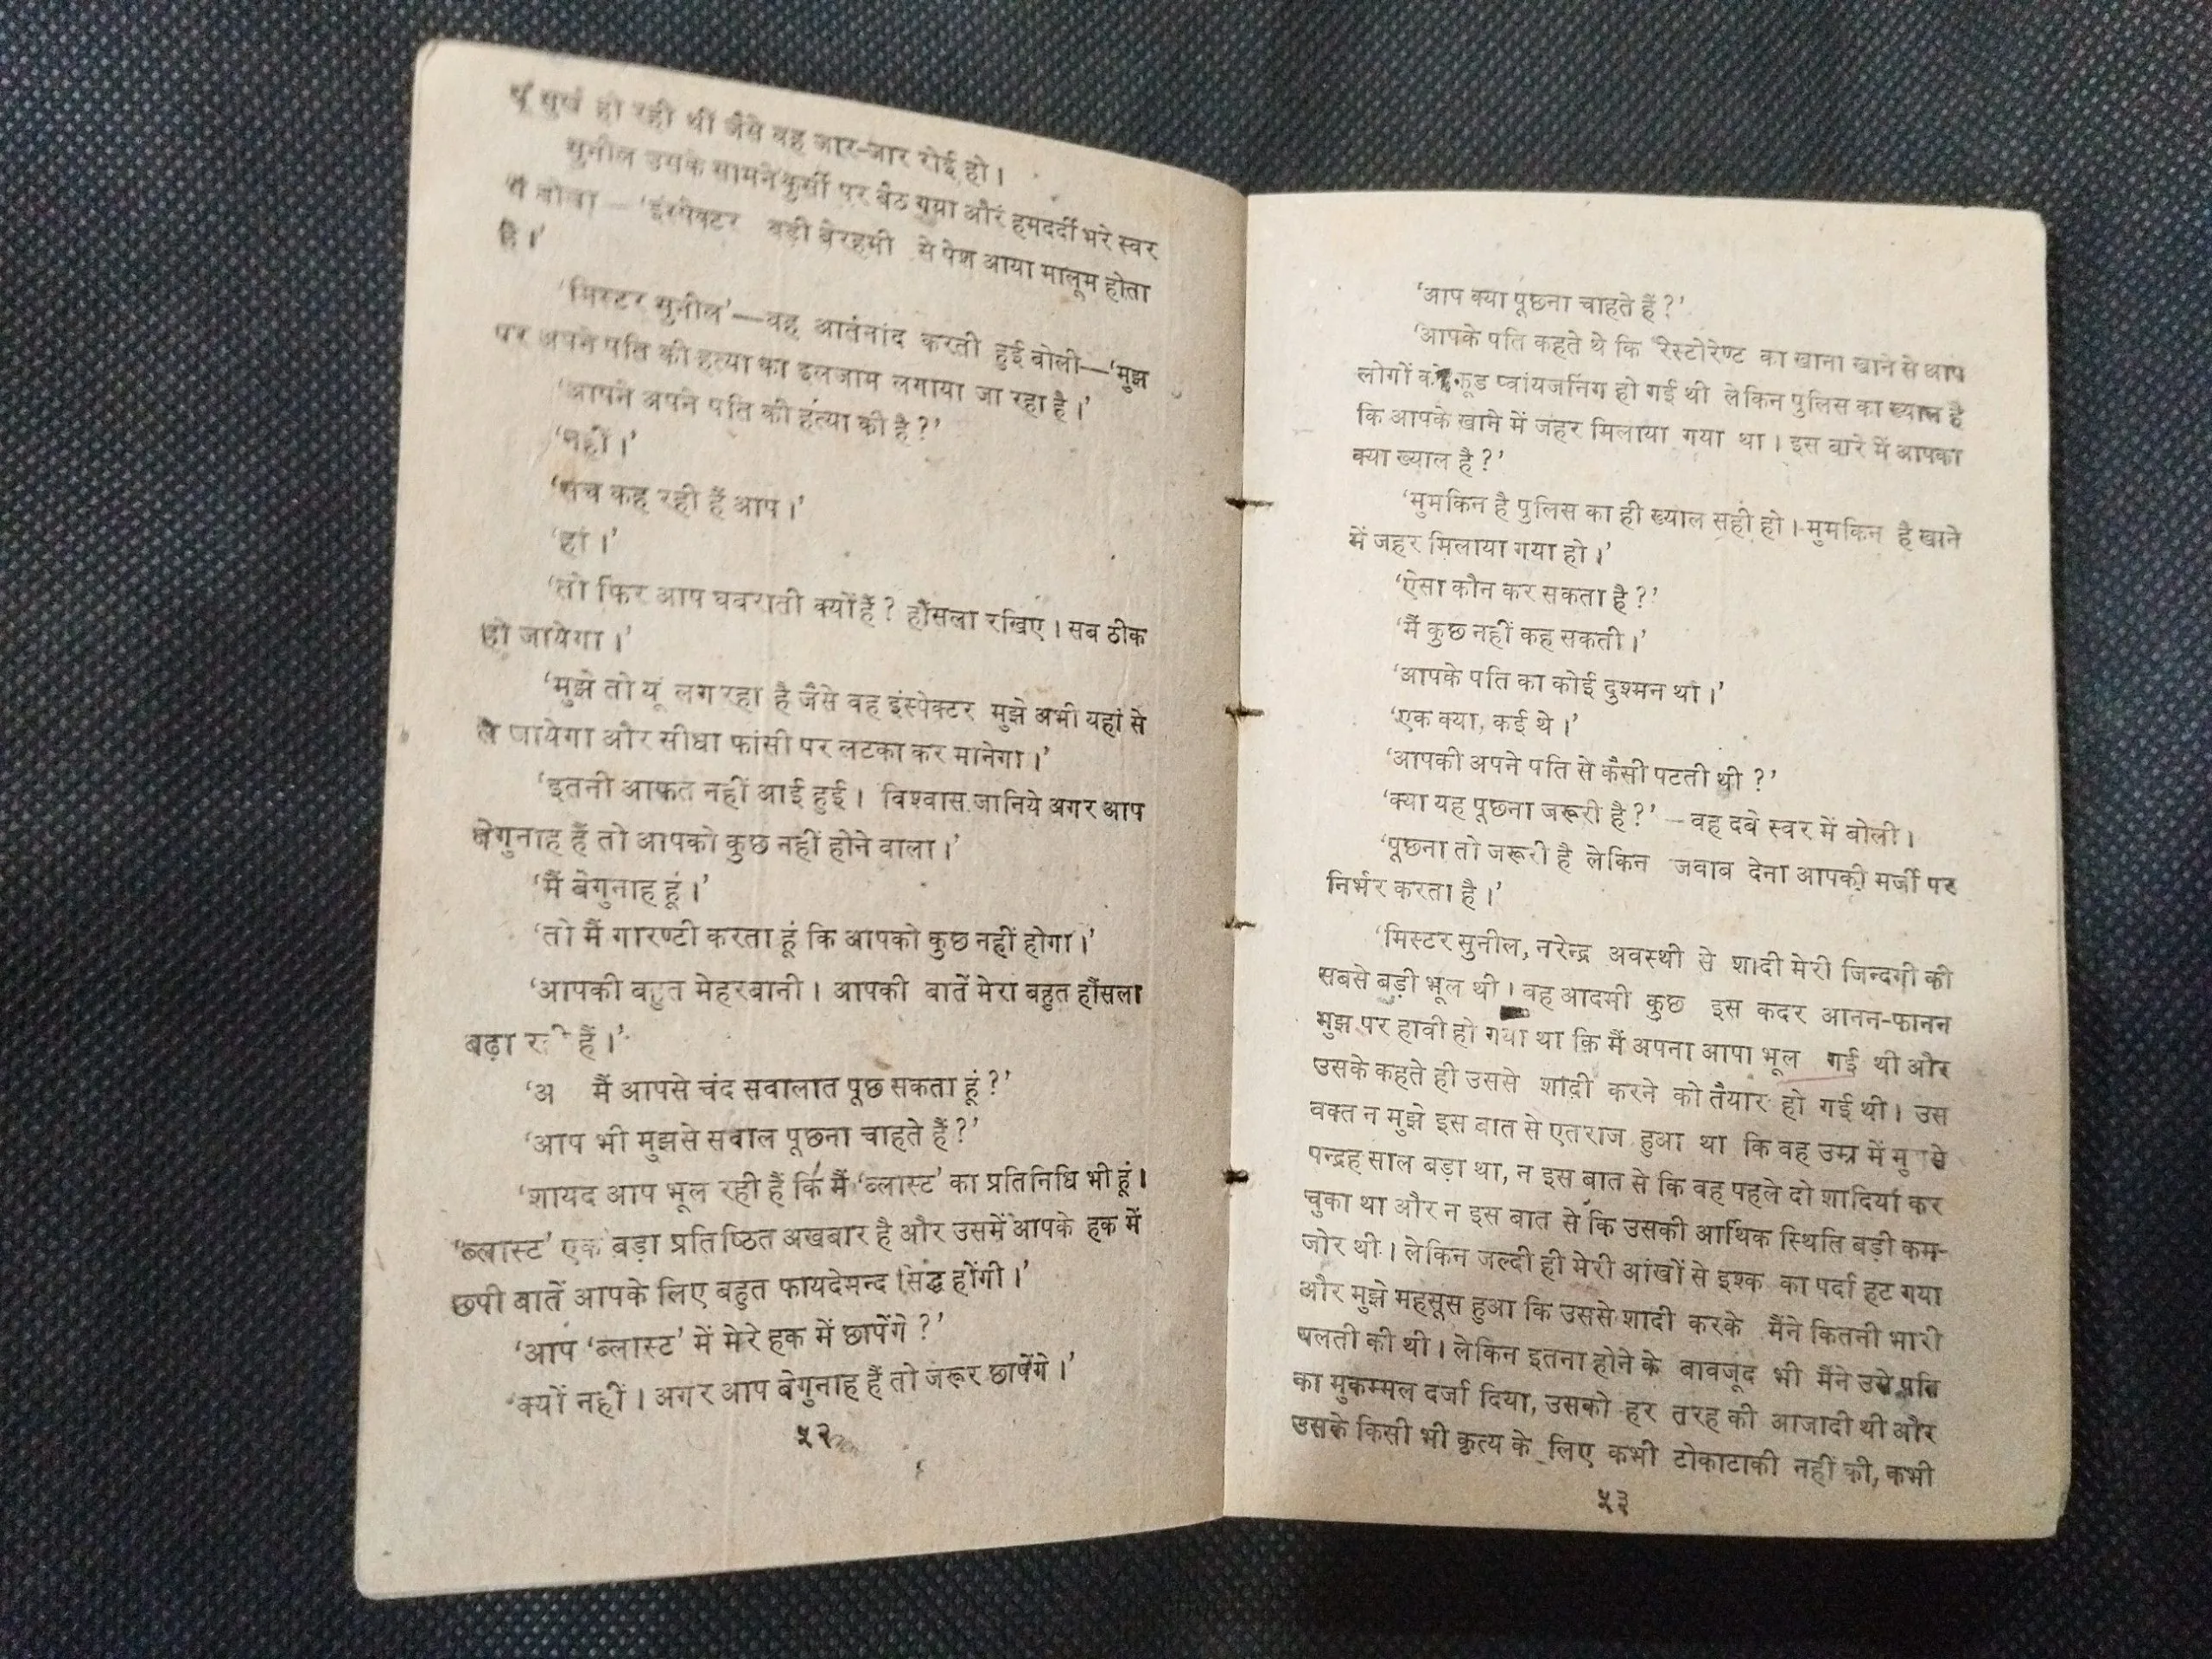 यूं सुर्ख हो रही थीं जैसे वह जार-जार रोई हो।
सुनील उसके सामने कुर्सी पर बैठ गया और हमदर्दी भरे स्वर
में बोला—‘इंस्पेक्टर बड़ी बेरहमी से पेश आया मालूम होता
है।’
‘मिस्टर सुनील’—वह आर्तनांद करती हुई बोली—‘मुझ
पर अपने पति की हत्या का इलजाम लगाया जा रहा है।’
‘आपने अपने पति की हत्या की है?’
‘नहीं।’
‘सच कह रही हैं आप।’
‘हां।’
‘तो फिर आप घबराती क्यों हैं? हौंसला रखिए। सब ठीक
हो जायेगा।’
‘मुझे तो यूं लग रहा है जैसे वह इंस्पेक्टर मुझे अभी यहां से
ले जायेगा और सीधा फांसी पर लटका कर मानेगा।’
‘इतनी आफत नहीं आई हुई। विश्वास जानिये अगर आप
बेगुनाह हैं तो आपको कुछ नहीं होने वाला।’
‘मैं बेगुनाह हूं।’
‘तो मैं गारण्टी करता हूं कि आपको कुछ नहीं होगा।’
‘आपकी बहुत मेहरबानी। आपकी बातें मेरा बहुत हौंसला
बढ़ा हैं।’
मैं आपसे चंद सवालात पूछ सकता हूं?’
‘आप भी मुझसे सवाल पूछना चाहते हैं?’
‘शायद आप भूल रही हैं कि मैं ‘ब्लास्ट’ का प्रतिनिधि भी हूं।
‘ब्लास्ट’ एक बड़ा प्रतिष्ठित अखबार है और उसमें आपके हक में
छपी बातें आपके लिए बहुत फायदेमन्द सिद्ध होंगी।’
‘आप ‘ब्लास्ट’ में मेरे हक में छापेंगे?’
‘क्यों नहीं। अगर आप बेगुनाह हैं तो जरूर छापेंगे।’
५२
‘आप क्या पूछना चाहते हैं?’
‘आपके पति कहते थे कि रेस्टोरेण्ट का खाना खाने से आप
लोगों को फूड प्वांयजनिंग हो गई थी लेकिन पुलिस का ख्याल है
कि आपके खाने में जहर मिलाया गया था। इस बारे में आपका
क्या ख्याल है?’
‘मुमकिन है पुलिस का ही ख्याल सही हो। मुमकिन है खाने
में जहर मिलाया गया हो।’
‘ऐसा कौन कर सकता है?’
‘मैं कुछ नहीं कह सकती।’
‘आपके पति का कोई दुश्मन था।’
‘एक क्या, कई थे।’
‘आपकी अपने पति से कैसी पटती थी?’
‘क्या यह पूछना जरूरी है?’—वह दबे स्वर में बोली।
‘पूछना तो जरूरी है लेकिन जवाब देना आपकी मर्जी पर
निर्भर करता है।’
‘मिस्टर सुनील, नरेन्द्र अवस्थी से शादी मेरी जिन्दगी की
सबसे बड़ी भूल थी। वह आदमी कुछ इस कदर आनन-फानन
मुझ पर हावी हो गया था कि मैं अपना आपा भूल गई थी और
उसके कहते ही उससे शादी करने को तैयार हो गई थी। उस
वक्त न मुझे इस बात से एतराज हुआ था कि वह उम्र में
पन्द्रह साल बड़ा था, न इस बात से कि वह पहले दो शादियां कर
चुका था और न इस बात से कि उसकी आर्थिक स्थिति बड़ी कम-
जोर थी। लेकिन जल्दी ही मेरी आंखों से इश्क का पर्दा हट गया
और मुझे महसूस हुआ कि उससे शादी करके मैंने कितनी भारी
गलती की थी। लेकिन इतना होने के बावजूद भी मैंने उसे पति
का मुकम्मल दर्जा दिया, उसको हर तरह की आजादी थी और
उसके किसी भी कृत्य के लिए कभी टोकाटाकी नहीं की, कभी
५३